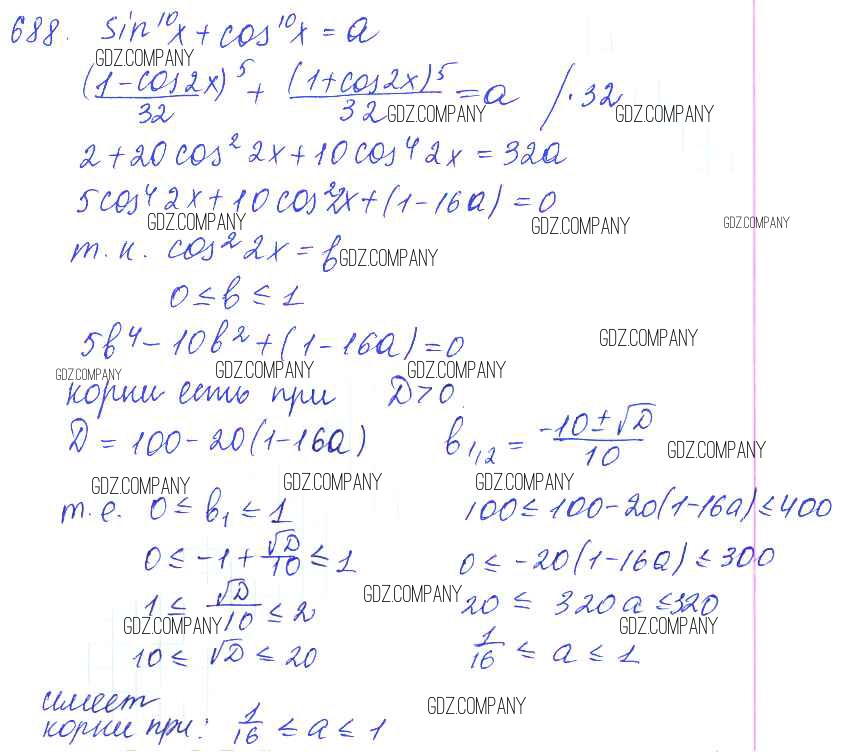 688. sin¹⁰x + cos¹⁰x = a
GDZ.COMPANY
(1-cos2x)⁵/32 + (1+cos2x)⁵/32 = a /·32
GDZ.COMPANY GDZ.COMPANY
2 + 20cos²2x + 10cos⁴2x = 32a
5cos⁴2x + 10cos²2x + (1-16a) = 0
GDZ.COMPANY GDZ.COMPANY GDZ.COMPANY
т.к. cos²2x = b
GDZ.COMPANY
0 ≤ b ≤ 1
5b⁴ - 10b² + (1-16a) = 0
GDZ.COMPANY
GDZ.COMPANY GDZ.COMPANY GDZ.COMPANY
корни есть при D>0
D = 100 - 20(1-16a) b₁,₂ = (-10±√D)/10
GDZ.COMPANY
GDZ.COMPANY GDZ.COMPANY GDZ.COMPANY
т.е. 0 ≤ b₁ ≤ 1 100 ≤ 100-20(1-16a) ≤ 400
0 ≤ -1 + √D/10 ≤ 1 0 ≤ -20(1-16a) ≤ 300
GDZ.COMPANY
1 ≤ √D/10 ≤ 2 20 ≤ 320a ≤ 320
GDZ.COMPANY GDZ.COMPANY
10 ≤ √D ≤ 20 1/16 ≤ a ≤ 1
имеет
GDZ.COMPANY
корни при: 1/16 ≤ a ≤ 1